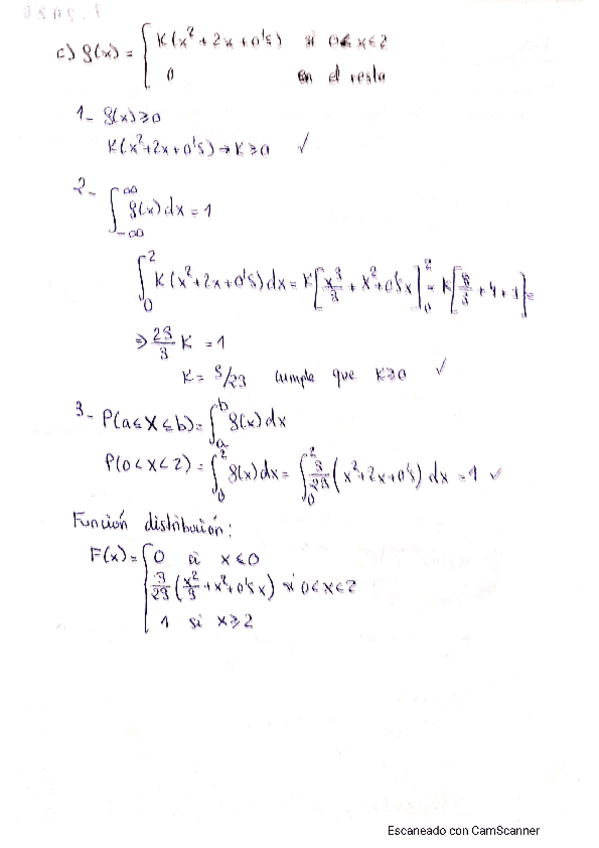 c) f(x) = { K(x² + 2x + 0'5) si 0 < x < 2
0 en el resto
1- f(x) ≥ 0
K(x² + 2x + 0'5) → K ≥ 0 ✓
2- ∫_{-∞}^{∞} f(x) dx = 1
∫_0^2 K(x² + 2x + 0'5) dx = K[x³/3 + x² + 0'5x]_0^2 = K[8/3 + 4 + 1] =
⇒ 23/3 K = 1
K = 3/23 cumple que K ≥ 0 ✓
3- P(a ≤ X ≤ b) = ∫_a^b f(x) dx
P(0 < x < 2) = ∫_0^2 f(x) dx = ∫_0^2 3/23 (x² + 2x + 0'5) dx = 1 ✓
Función distribución:
F(x) = { 0 si x ≤ 0
3/23 (x²/3 + x² + 0'5x) si 0 < x < 2
1 si x ≥ 2
Escaneado con CamScanner